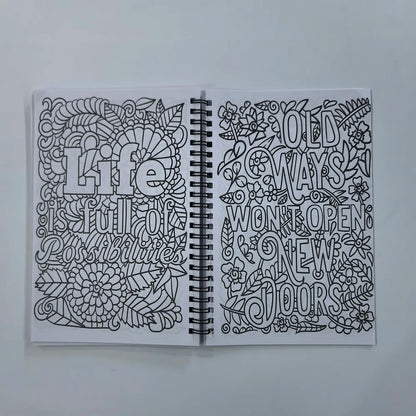 Life
is full of
Possibilities
OLD
WAYS
WON'T OPEN
NEW
DOORS